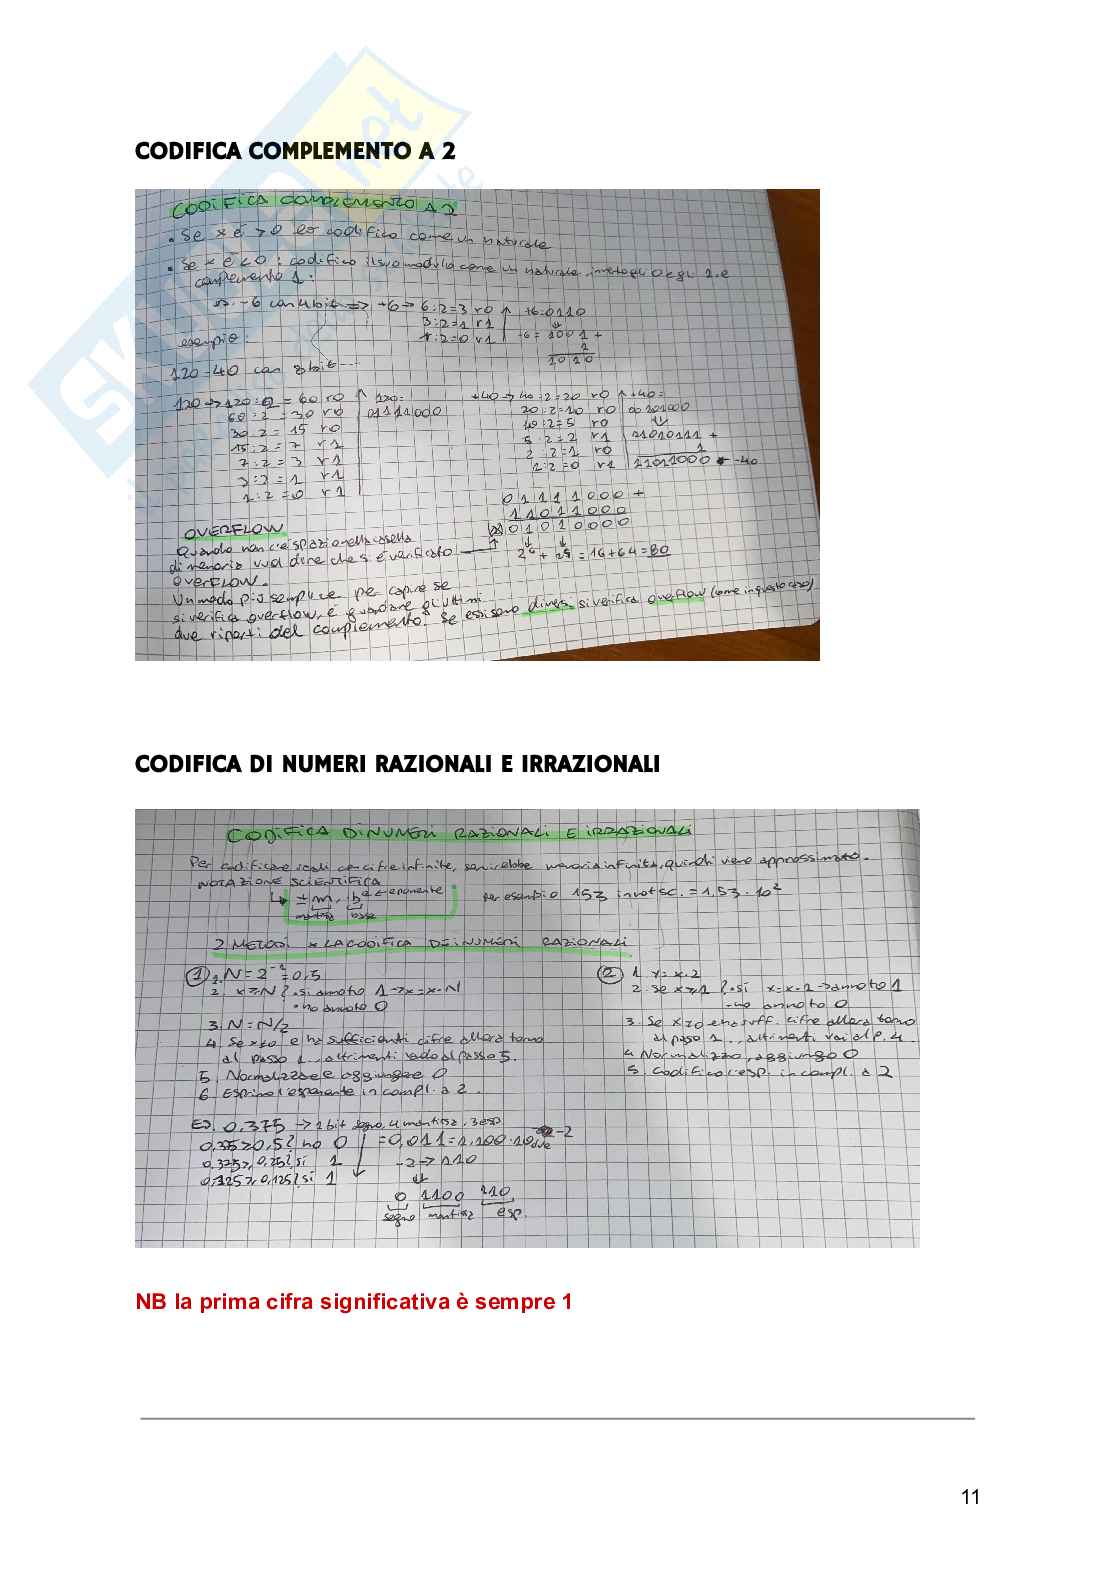 CODIFICA COMPLEMENTO A 2
CODIFICA COMPLEMENTO A 2
• Se x è > 0 lo codifico come un naturale
• Se x è < 0 : codifico il suo modulo come un naturale, inverto gli 0 e gli 1 e
complemento 1.
-6 con 4 bit => +6 → 6:2=3 r0 +6:0110
3:2=1 r1
1:2=0 r1 -6= 1001 +
1
1010
esempio:
120-40 con 8 bit
120 → 120:2 = 60 r0 120=
60:2 = 30 r0 01111000
30:2 = 15 r0
15:2 = 7 r1
7:2 = 3 r1
3:2 = 1 r1
1:2 = 0 r1
+40 → 40:2=20 r0 +40=
20:2=10 r0 00101000
10:2=5 r0
5:2=2 r1 11010111 +
2:2=1 r0 1
1:2=0 r1 11011000 ← -40
01111000 +
11011000
(1)01010000
2⁴ + 2⁶ = 16+64=80
OVERFLOW
Quando non c'è spazio nella casella
di memoria vuol dire che si è verificato
OVERFLOW.
Un modo più semplice per capire se
si verifica overflow, è guardare gli ultimi
due riporti del complemento. Se essi sono diversi si verifica overflow (come in questo caso)
CODIFICA DI NUMERI RAZIONALI E IRRAZIONALI
CODIFICA DI NUMERI RAZIONALI E IRRAZIONALI
Per codificare reali con cifre infinite, servirebbe memoria infinita, quindi viene approssimato.
NOTAZIONE SCIENTIFICA
↳ ± m · b ← esponente
mantissa base
per esempio 153 in not sc. = 1,53 · 10²
2 METODI x LA CODIFICA DEI NUMERI RAZIONALI
① 1. N = 2⁻¹ = 0,5
2. x ≥ N? • si annoto 1 → x = x - N
• no annoto 0
3. N = N/2
4. Se x≠0 e ho sufficienti cifre allora torno
al passo 1... altrimenti vado al passo 5.
5. Normalizzare e aggiungere 0
6. Esprimo l'esponente in compl. a 2.
② 1. x = x·2
2. se x ≥ 1 ? • si x = x-1 → annoto 1
- no annoto 0
3. Se x≠0 e ho suff. cifre allora torno
al passo 1... altrimenti vai al p. 4.
4. Normalizzo, aggiungo 0
5. Codifico l'esp. in compl. a 2
Es. 0,375 → 1 bit segno, 4 mantissa, 3 esp
0,375 > 0,5? no 0 = 0,011 = 1,100 · 10due -2
0,375 ≥ 0,25? si 1 -2 → 110
0,125 ≥ 0,125? si 1
0 1100 110
segno mantissa esp.
NB la prima cifra significativa è sempre 1
11